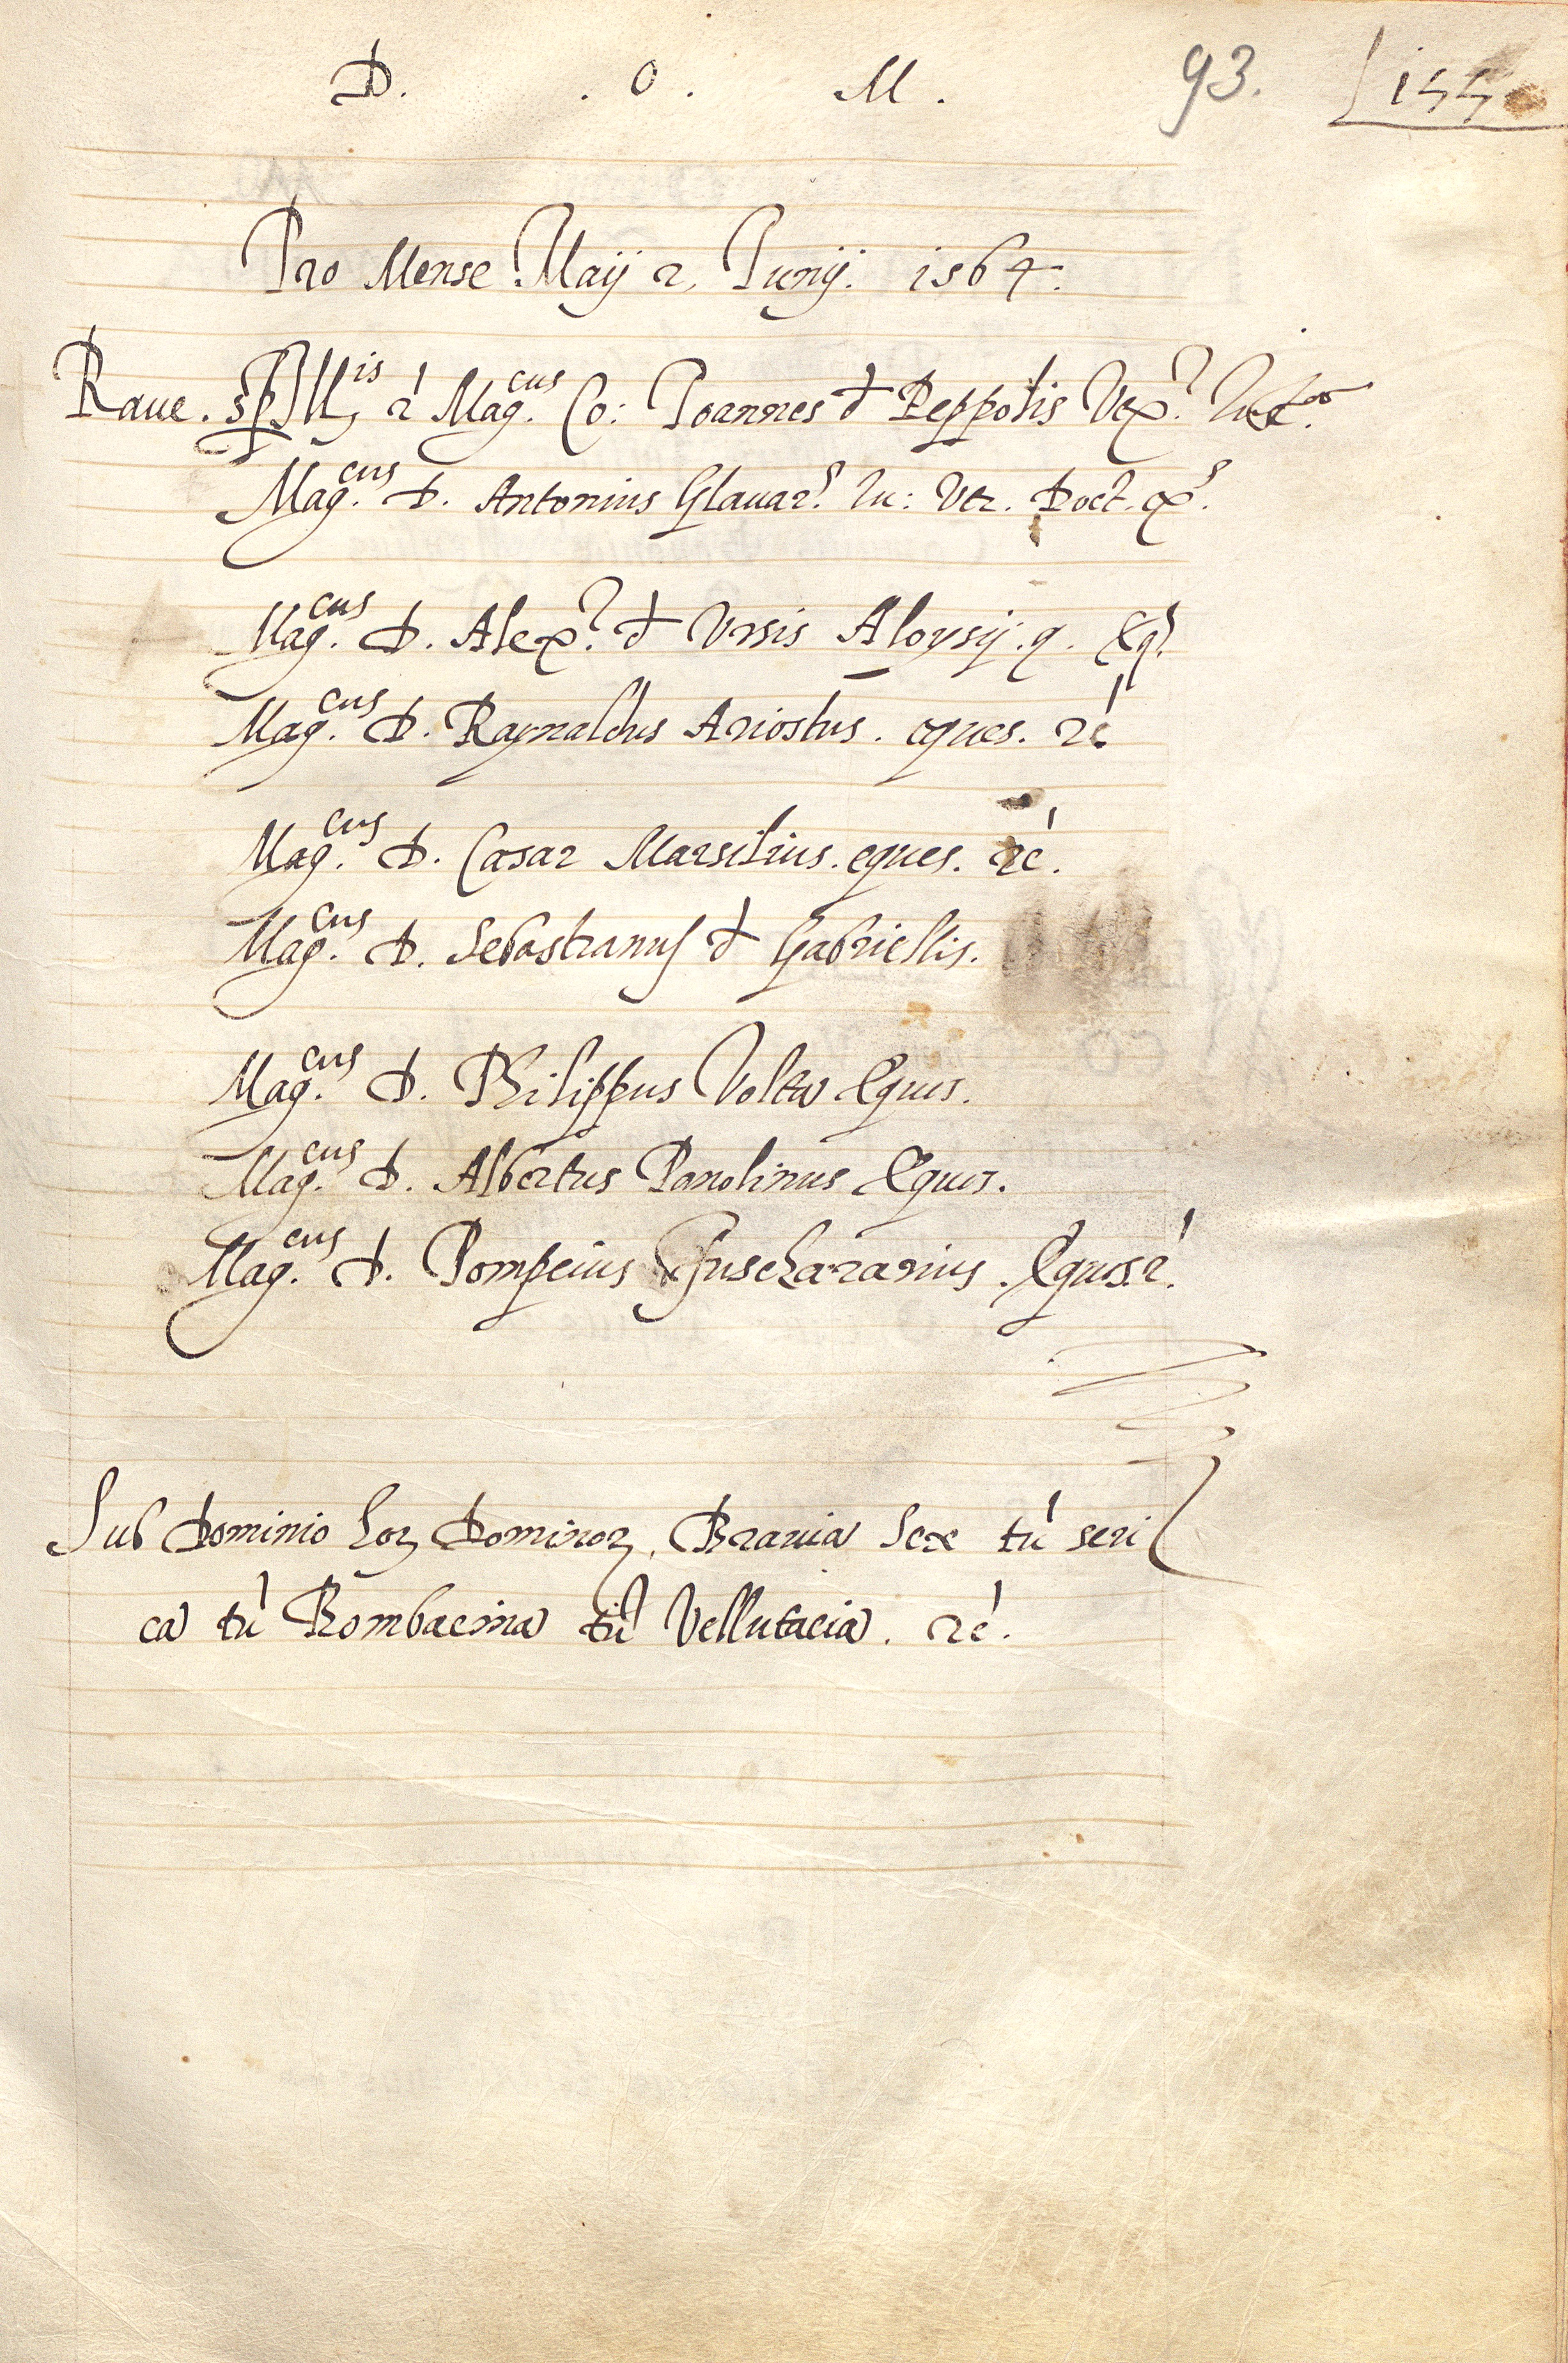 D. . O . M . 93. 155
Pro Mense Maij & Junij. 1564.
Raue. Mag.cus Co: Joannes d Peppolis Vex.
Mag.cus D. Antonius Iu: Vtr. Doct.
Mag.cus D. Alex. d Vrsis Aloysij. q. Eq.
Mag.cus D. Raynaldus Ariostus. eques. &c
Mag.cus D. Cæsar Marsilius. eques. &c.
Mag.cus D. Sebastianus d Gabriellis.
Mag.cus D. Philippus Volta Eques.
Mag.cus D. Albertus Eques.
Mag.cus D. Pompeius Fuschararius. Eques. &.
Sub Dominio hor Dominor. Brauia Sex tu seri
ca tu Bombacina tu Vellutacia. &c.